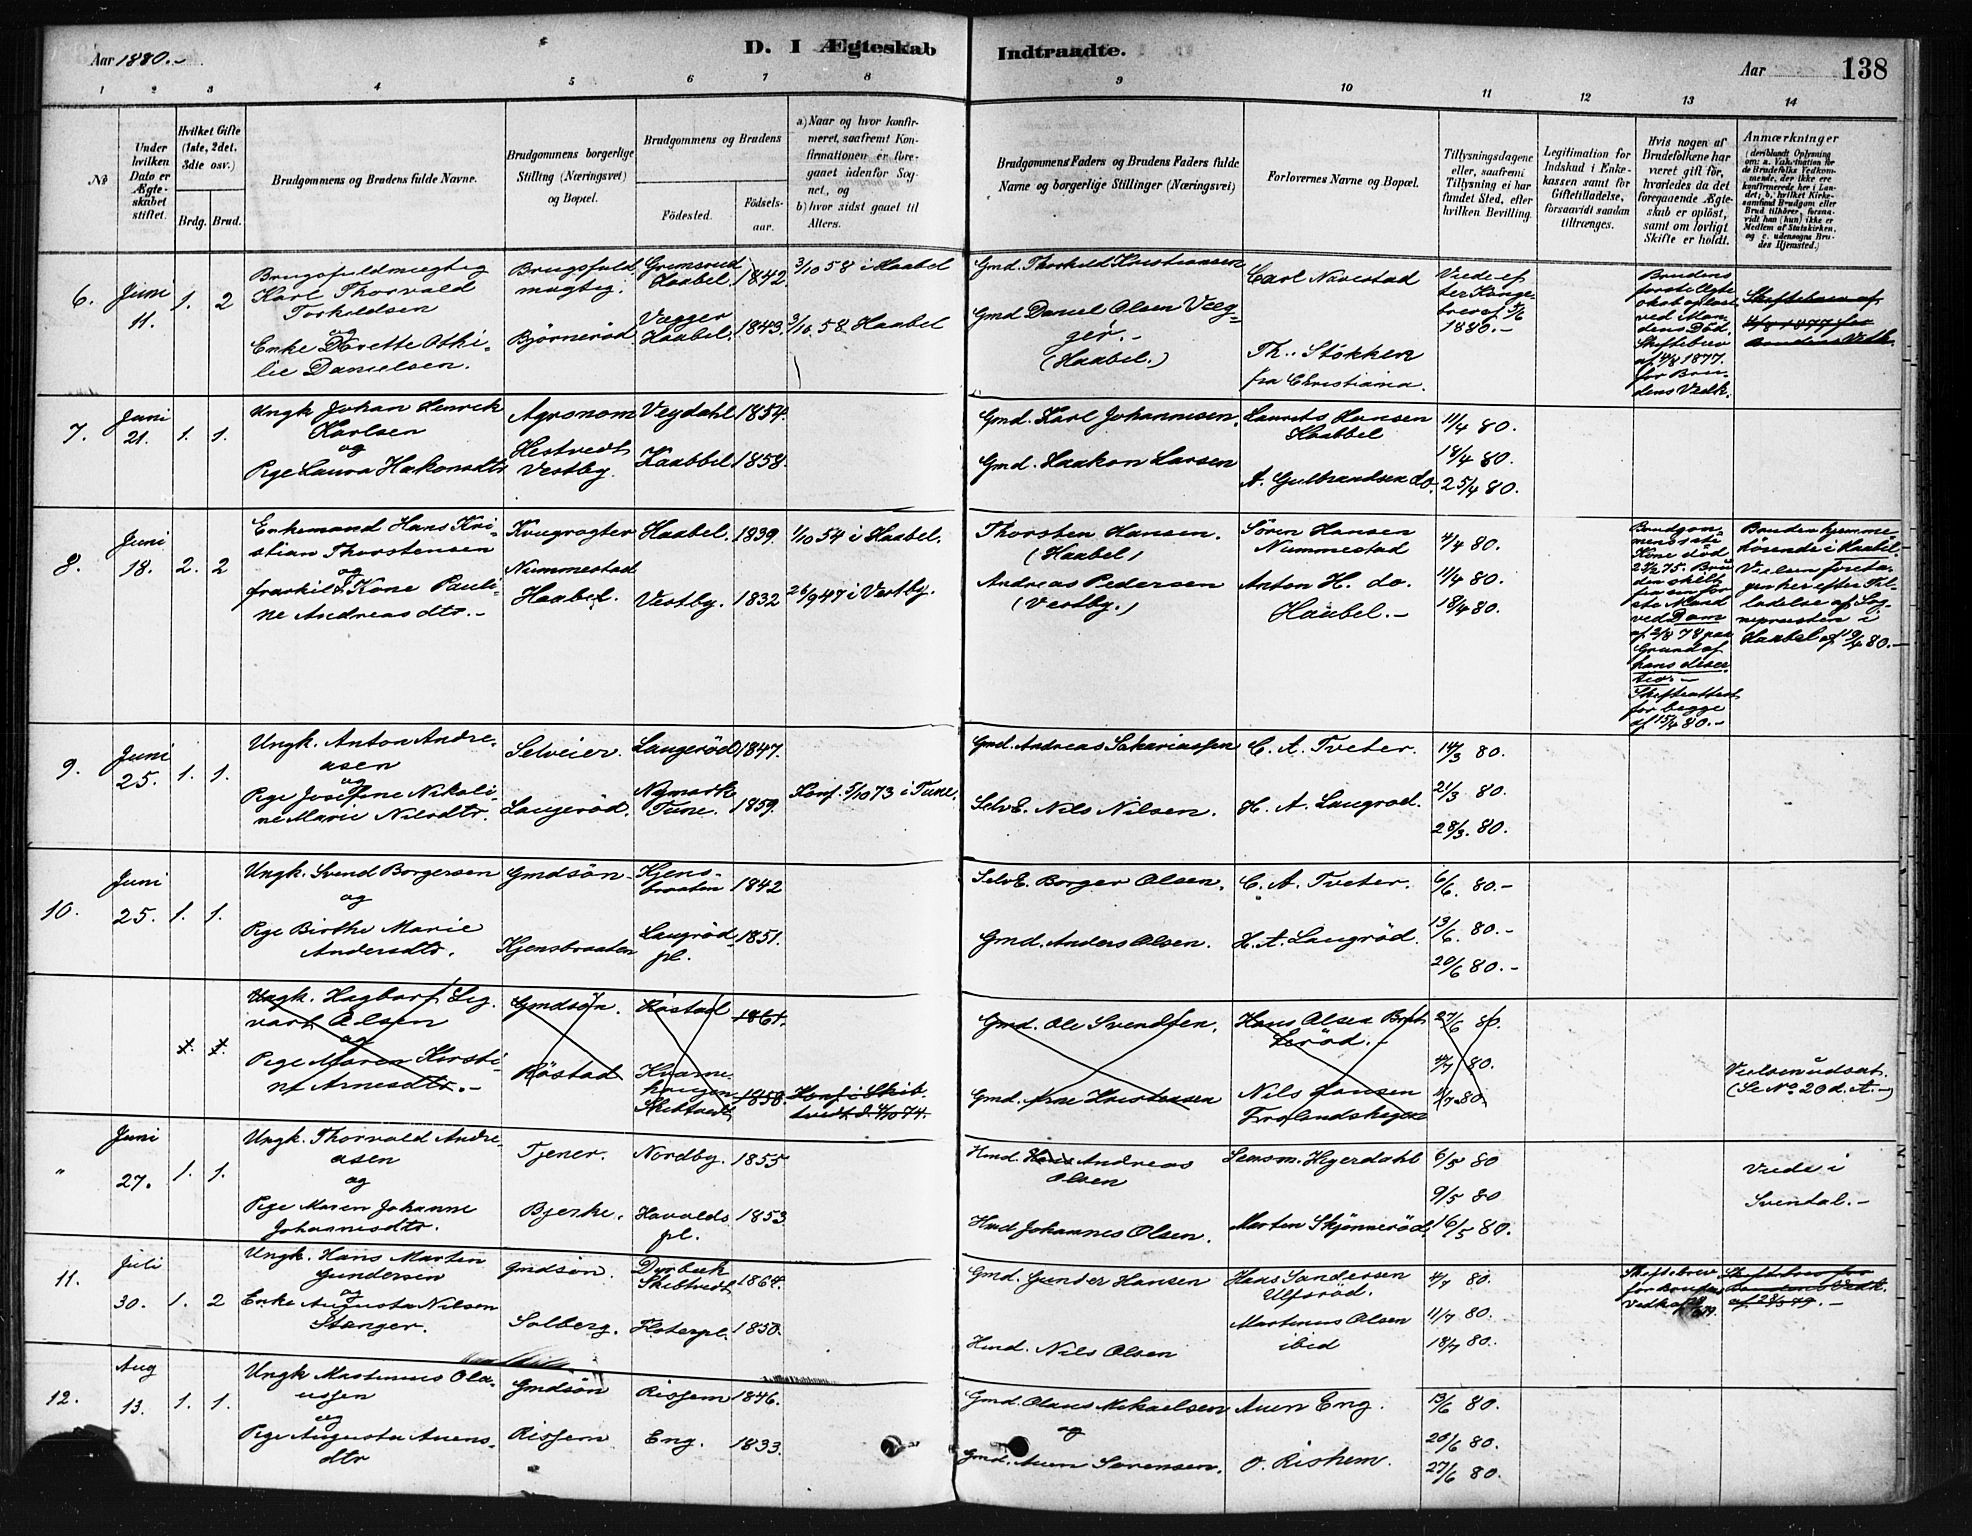 Aar 1880.-
D. I Ægteskab
Indtraadte.
Aar
138
1 2 3 4 5 6 7 8 9 10 11 12 13 14
No
Under hvilken Dato er Ægteskabet stiftet.
Hvilket Gifte (1ste, 2det, 3die osv.)
Brdg. Brud.
Brudgommens og Brudens fulde Navne.
Brudgommens borgerlige Stilling (Næringsvei) og Bopæl.
Brudgommens og Brudens
Fødested.
Fødselsaar.
a) Naar og hvor konfirmeret, saafremt Konfirmationen er foregaaet udenfor Sognet, og
b) hvor sidst gaaet til Alters.
Brudgommens Faders og Brudens Faders fulde Navne og borgerlige Stillinger (Næringsvei)
Forlovernes Navne og Bopæl.
Tillysningsdagene eller, saafremt Tillysning ei har fundet Sted, efter hvilken Bevilling.
Legitimation for Indskud i Enkekassen samt for Giftetilladelse, forsaavidt saadan tiltrænges.
Hvis nogen af Brudefolkene har været gift før, hvorledes da det foregaaende Ægteskab er opløst, samt om lovligt Skifte er holdt.
Anmærkninger
6. Juni 11. 1. 2
Brugsfuldmægtig
Karl Thorvald
Torkildsen
og
Enke Dorette Othi-
lie Danielsen.
Brugsfuld
mægtig.
Bjørnerød
Gremsrud
Haabel. 1842.
Vegger
Haabel. 1843.
3/10 58 i Haabel
3/10. 58 Haabel
Gmd. Thorkild Kristiansen
Gmd Daniel Olsen Veg-
ger.-
(Haabel.)
Carl Navestad
Th. Stokken
fra Christiania.
Viede ef
ter Konge
brev af
1880.-
Brudens
første Ægte
skab opløst
ved Man
dens Død.
Skiftebrev
af 4/8 1877.
for Bru-
dens Vedk.
Skiftebrev af
4/8 1877 for
Brudens Vedk.
7. Juni 21. 1. 1.
Ungk Johan Henrik
Karlsen
og
Pige Laura Hakonsdtr
Agronom
Hestvedt
Vestby.
Veydahl 1854.
Haabbel 1858.
Gmd. Karl Johannesen.
Gmd. Haakon Larsen
Laurits Hansen
Haabbel
A. Gulbrandsen do.
11/4 80.
18/4 80.
25/4 80.
8. Juni 18. 2. 2
Enkemand Hans Kri-
stian Thorstensen
og
fraskilt Kone Pauli-
ne Andreasdtr.-
Kvægrøgter
Nummestad
Haabel.
Haabel. 1839.
Vestby. 1832
1/10 54 i Haabel.
26/9 47 i Vestby.
Thorsten Hansen.
(Haabel)
Andreas Pedersen
(Vestby.)
Sören Hansen
Nummestad
Anton H. do.
Haabel.-
4/4 80.
11/4 80.
18/4 80.
Brudgom
mens sidste
Kone död
27/2 75. Bru
den skilt
fra sin för
ste Mand
ved Dom
af 2/8 78 paa
Grund af
hans deser
tion.-
Skifteattest
for begge
af 15/4 80.-
Bruden hjemme
hørende i Haabel.
Vielsen foreta
gen her efter Til
ladelse af Sog-
nepræsten i
Haabel af 19/4 80.-
9. Juni 25. 1. 1.
Ungk. Anton Andre-
asen
og
Pige Josefine Nikoli-
ne Marie Nilsdtr.
Selveier.
Laugeröd.
Laugeröd 1847.
Nymark
Tune. 1859.
Konf. 5/10 73 i Tune.
Gmd. Andreas Sakariassen
SelvE. Nils Nilsen.
C. A. Tveter.
H. A. Laugrød.
14/3 80.
21/3 80.
28/3. 80.
10. Juni 25. 1. 1.
Ungk. Svend Borgersen
og
Pige Birthe Marie
Andersdtr.
Gmdsön
Kjensbraaten
Kjens-
braaten 1842
Laugröd
pl. 1851.
SelvE. Borger Olsen.
Gmd. Anders Olsen.
C. A. Tveter.
H. A. Laugröd.
6/6. 80.-
13/6. 80.-
20/6 80.-
1. 1.
Ungk. Hagbart Sig.
vart Olsen
og
Pige Maren Kersti-
ne Arnesdtr.-
Gmdsön.
Röstad
Röstad 1861.
Kværne
haugen
Skibtvedt 1858.
Konf. i Skib
tvedt d. 4/10 74.
Gmd. Ole Svendsen.
Gmd. Arne Kristensen
Hans Olsen
Nils Hansen
27/6 80.
4/7 80.
11/7 80.
Vielsen udsat.
(Se No 20 d. A.-)
" Juni 27. 1. 1.
Ungk. Thorvald Andre-
asen
og
Pige Maren Johanne
Johannesdtr.
Tjener.
Bjerke.
Nordby. 1855
Havolds
pl. 1853
Hmd. Hans Andreas
Olsen
Hmd Johannes Olsen.
Lensm. Heyerdahl
Morten Skjönneröd
6/5 80
9/5 80
16/5 80.
Viede i
Svendal.-
11. Juli 30. 1. 2
Ungk. Hans Martin
Gundersen
og
Enke Augusta Nilsen
Stanger.
Gmdsön.
Solberg.
Dyrbæk
Skibtvedt 1864.
Floterpl. 1850.
Gmd. Gunder Hansen
Hmd. Nils Olsen
Hans Gundersen
Ulfsröd.
Martinus Olsen
ibid
4/7 80.
11/7 80.
18/7 80.
Skiftebrev
for Brudens
Vedk af
Skiftebrev for
Brudens Vedk.
af 28/5 79.-
12. Aug 13. 1. 1.
Ungk Martinus Ola-
ussen
og
Pige Augusta Auens-
dtr
Gmdsön
Rissem
Rissem 1846.
Eng. 1833.
Gmd. Olaus Mikaelsen
og
Gmd. Auen Sørensen.
Auen Eng.
O. Rishem.
13/6 80.
20/6 80.
27/6 80.